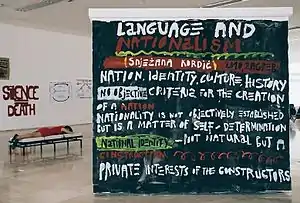 SILENCE
=
DEATH
LANGUAGE AND
NATIONALISM
(SNJEŽANA KORDIĆ) 2010 ZAGREB
NATION, IDENTITY, CULTURE, HISTORY
NO OBJECTIVE CRITERIA FOR THE CREATION
OF A NATION
NATIONALITY IS NOT OBJECTIVELY ESTABLISHED
BUT IS A MATTER OF SELF-DETERMINATION
NATIONAL IDENTITY - NOT NATURAL BUT A
CONSTRUCTION
PRIVATE INTERESTS OF THE CONSTRUCTORS